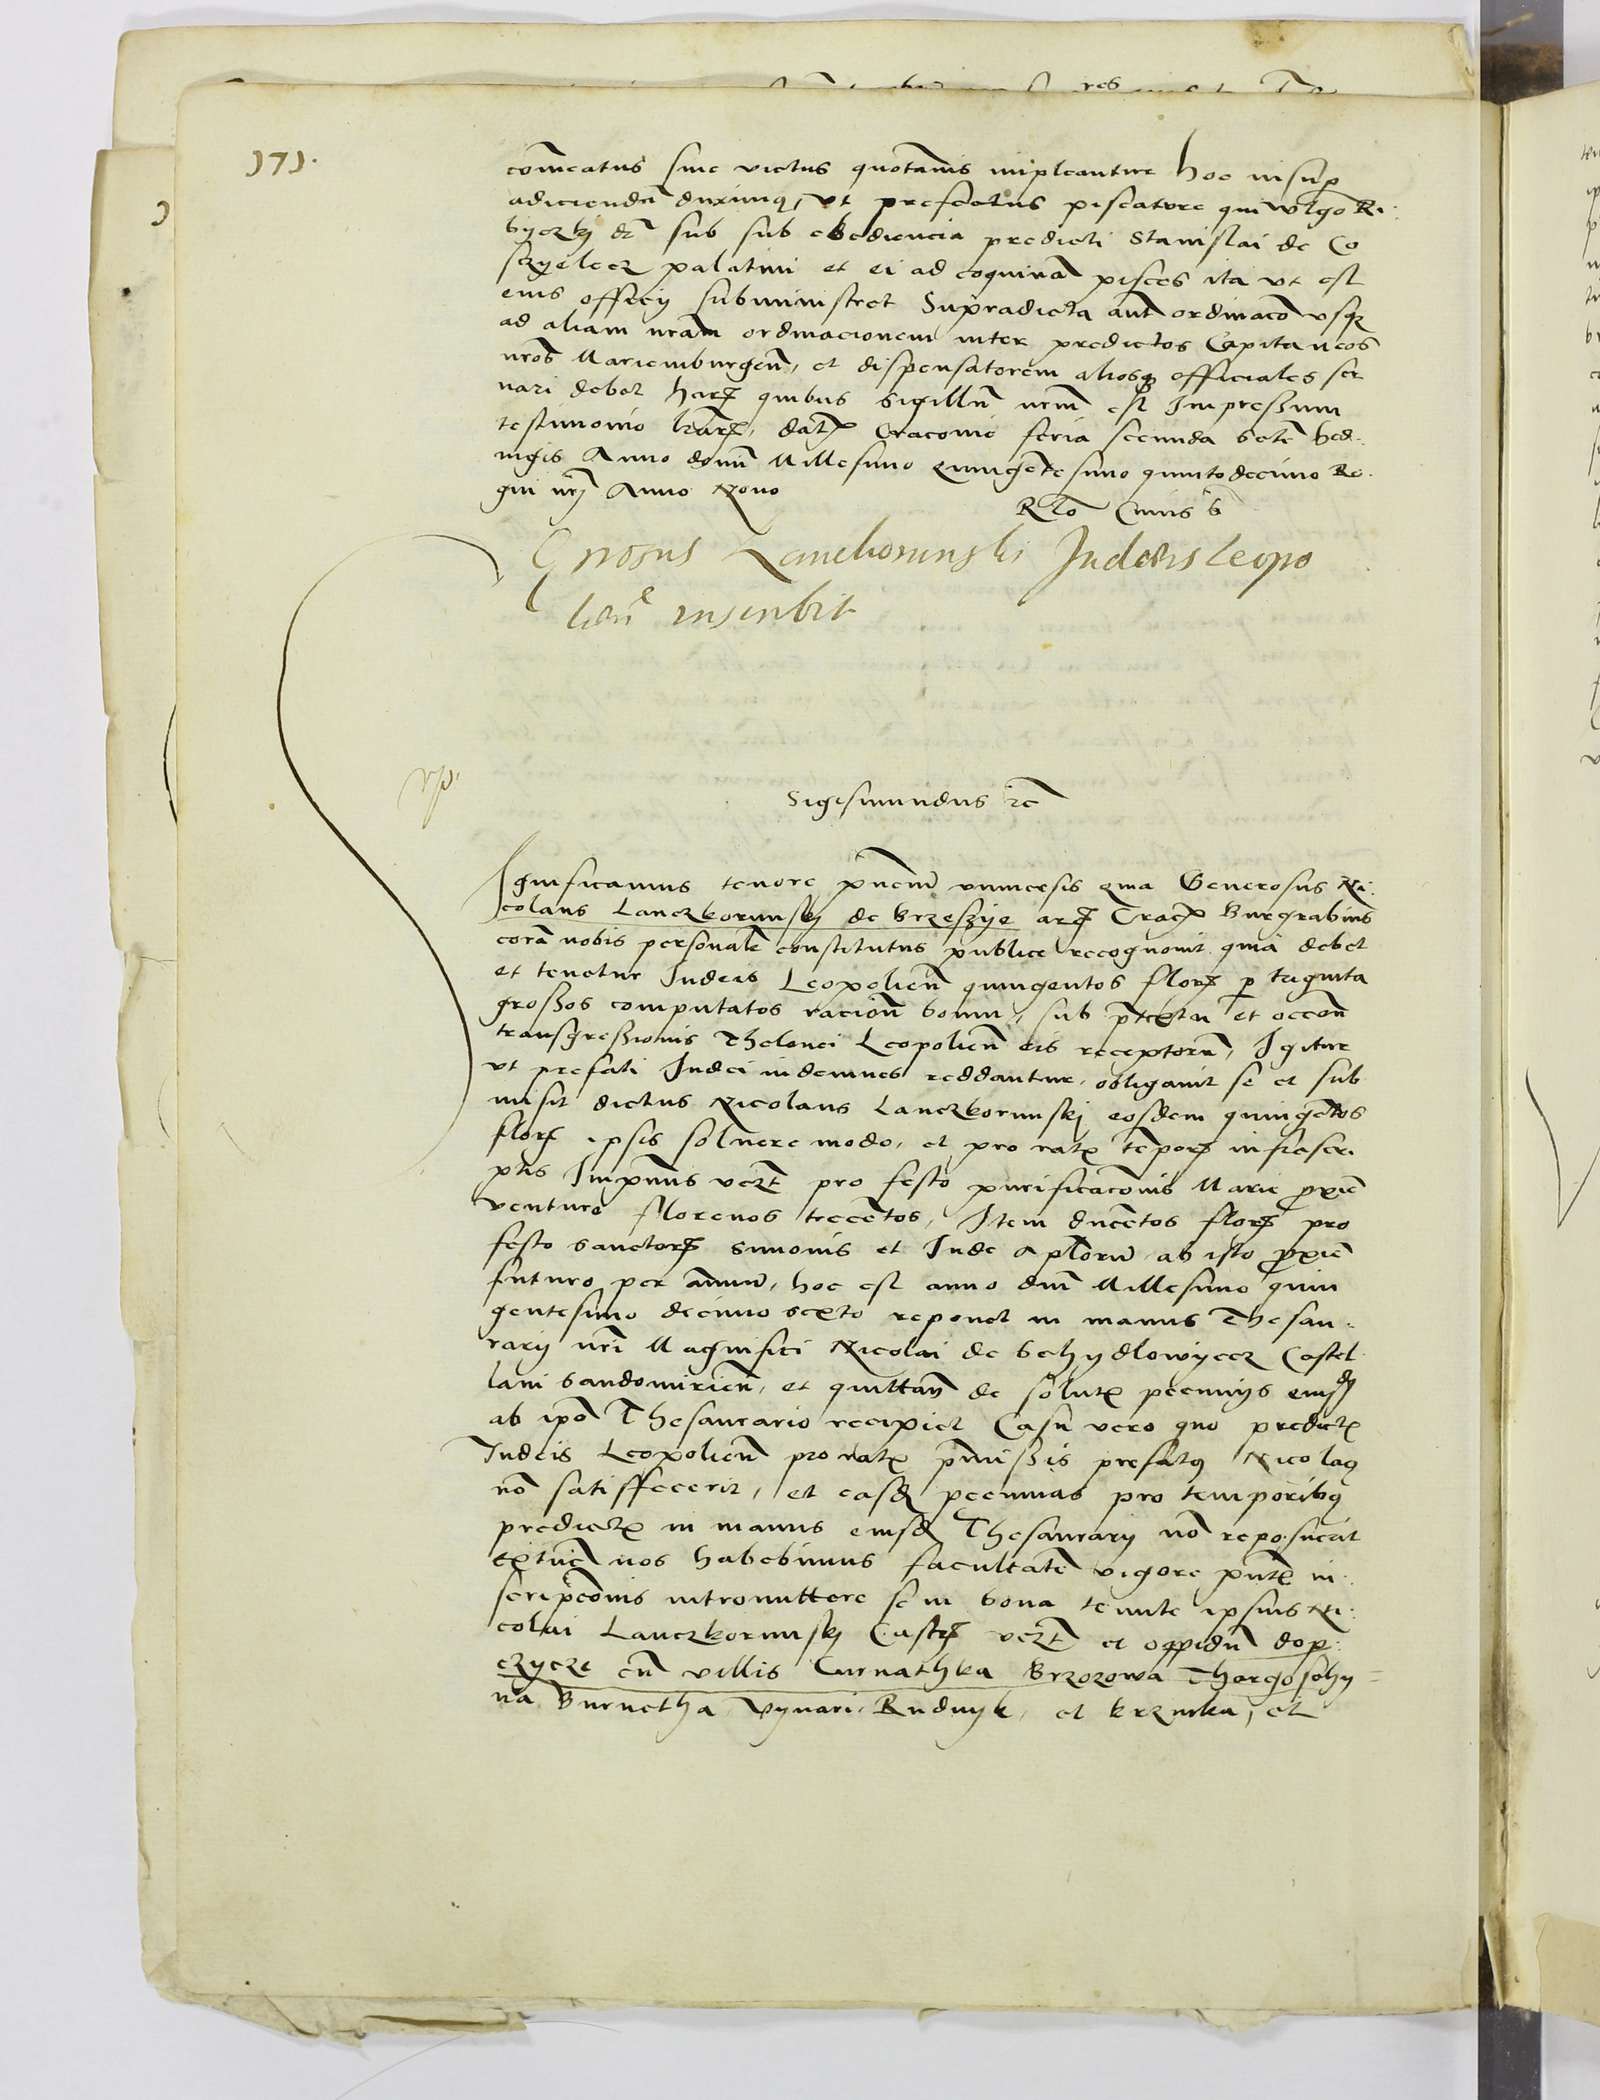 171.
com̄eatus siue victus quotannis impleantur Hoc insup
adiciendū duximq, vt prefectus piscature qui wlgo Ri
byczky dr̄ sub sub obediencia predicti Stanislai de Co
sczyelecz palatini et ei ad coquinā pisces ita vt est
eius officij subministret Supradicta aut̄ ordinacō vsqz
ad aliam nrām ordinacionem inter predictos Capitaneos
nrōs Mariemburgen̄, et dispensatorem aliosqz officiales ser
uari debet harꝝ quibus sigillū nrm̄ est Impressum
testimonio lrarꝝ, datꝭ Cracouie feria secunda sctē Hed
uigis Anno domī Millesimo quingentesimo quintodecimo Re
gni nrj Anno Nono
Rlo Cuius s
Gnosus Lanczkorunski Judeis Leopo
lien̄ inscribit
Sigismundus rc̄
Significamus tenore pn̄cium vniuersis qma Generosus Ni
colaus Lanczkorunskj de Brzeszye arꝝ Cracꝭ Burgrabius
corā nobis personalr̄ constitutus publice recognouit quia debet
et tenetur Judeis Leopolien̄ quingentos florꝝ p triginta
grossos computatos racion̄ bouum, sub pretextu et occōn̄
transgressionis Thelonei Leopolien̄ eis receptorū, Igitur
vt prefati Judei indemnes reddantur, obligauit se et sub
misit dictus Nicolaus Lanczkorunskj eosdem quingētos
florꝝ ipsis soluere modo, et pro ratꝭ tēporꝝ infrascri
ptis Imprimis vcz̄ pro festo purificacōnis Marie proxīe
venturo florenos trecētos, Item ducētos florꝝ pro
festo sanctorꝝ Simonis et Jude aplorū ab isto proxīe
futuro per annū, hoc est anno dni Millesimo quin
gentesimo decimo sexto reponet in manus Thesau
rarij nrī Magnifici Nicolai de Schydlowyecz Castel
lani Sandomirien̄, et quittan̄ de solutꝭ pecunijs eiusdꝫ
ab ipō Thesaurario recipiet Casu vero quo predictꝭ
Judeis Leopolien̄ pro ratꝭ pmissis prefatꝯ Nicolaꝯ
nō satisffecerit, et easdꝫ pecunias pro temporibꝯ
predictꝭ in manus eiusdꝫ Thesaurarij nō reposuerit
extūc nos habebimus facultatē vigore pn̄tꝭ in
scripcōnis intromittere se in bona tenute ipsius Ni
colai Lanczkorunskj Castrꝝ vcz̄ et oppidū dop
czycze cū villis Curnathka Brzozowa Thargoschy
na Burnetha, Vynari, Rudnyk, et krzuika, et